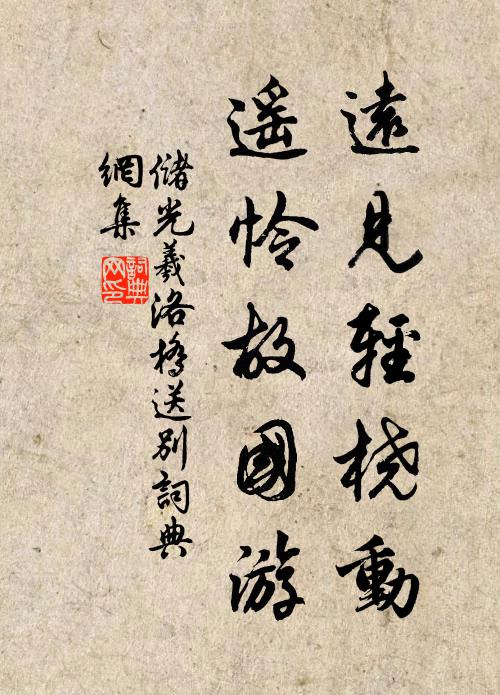 遠見輕橈動
遙怜故國游
儲光羲洛橋送別詞典
網集
詞典
网印